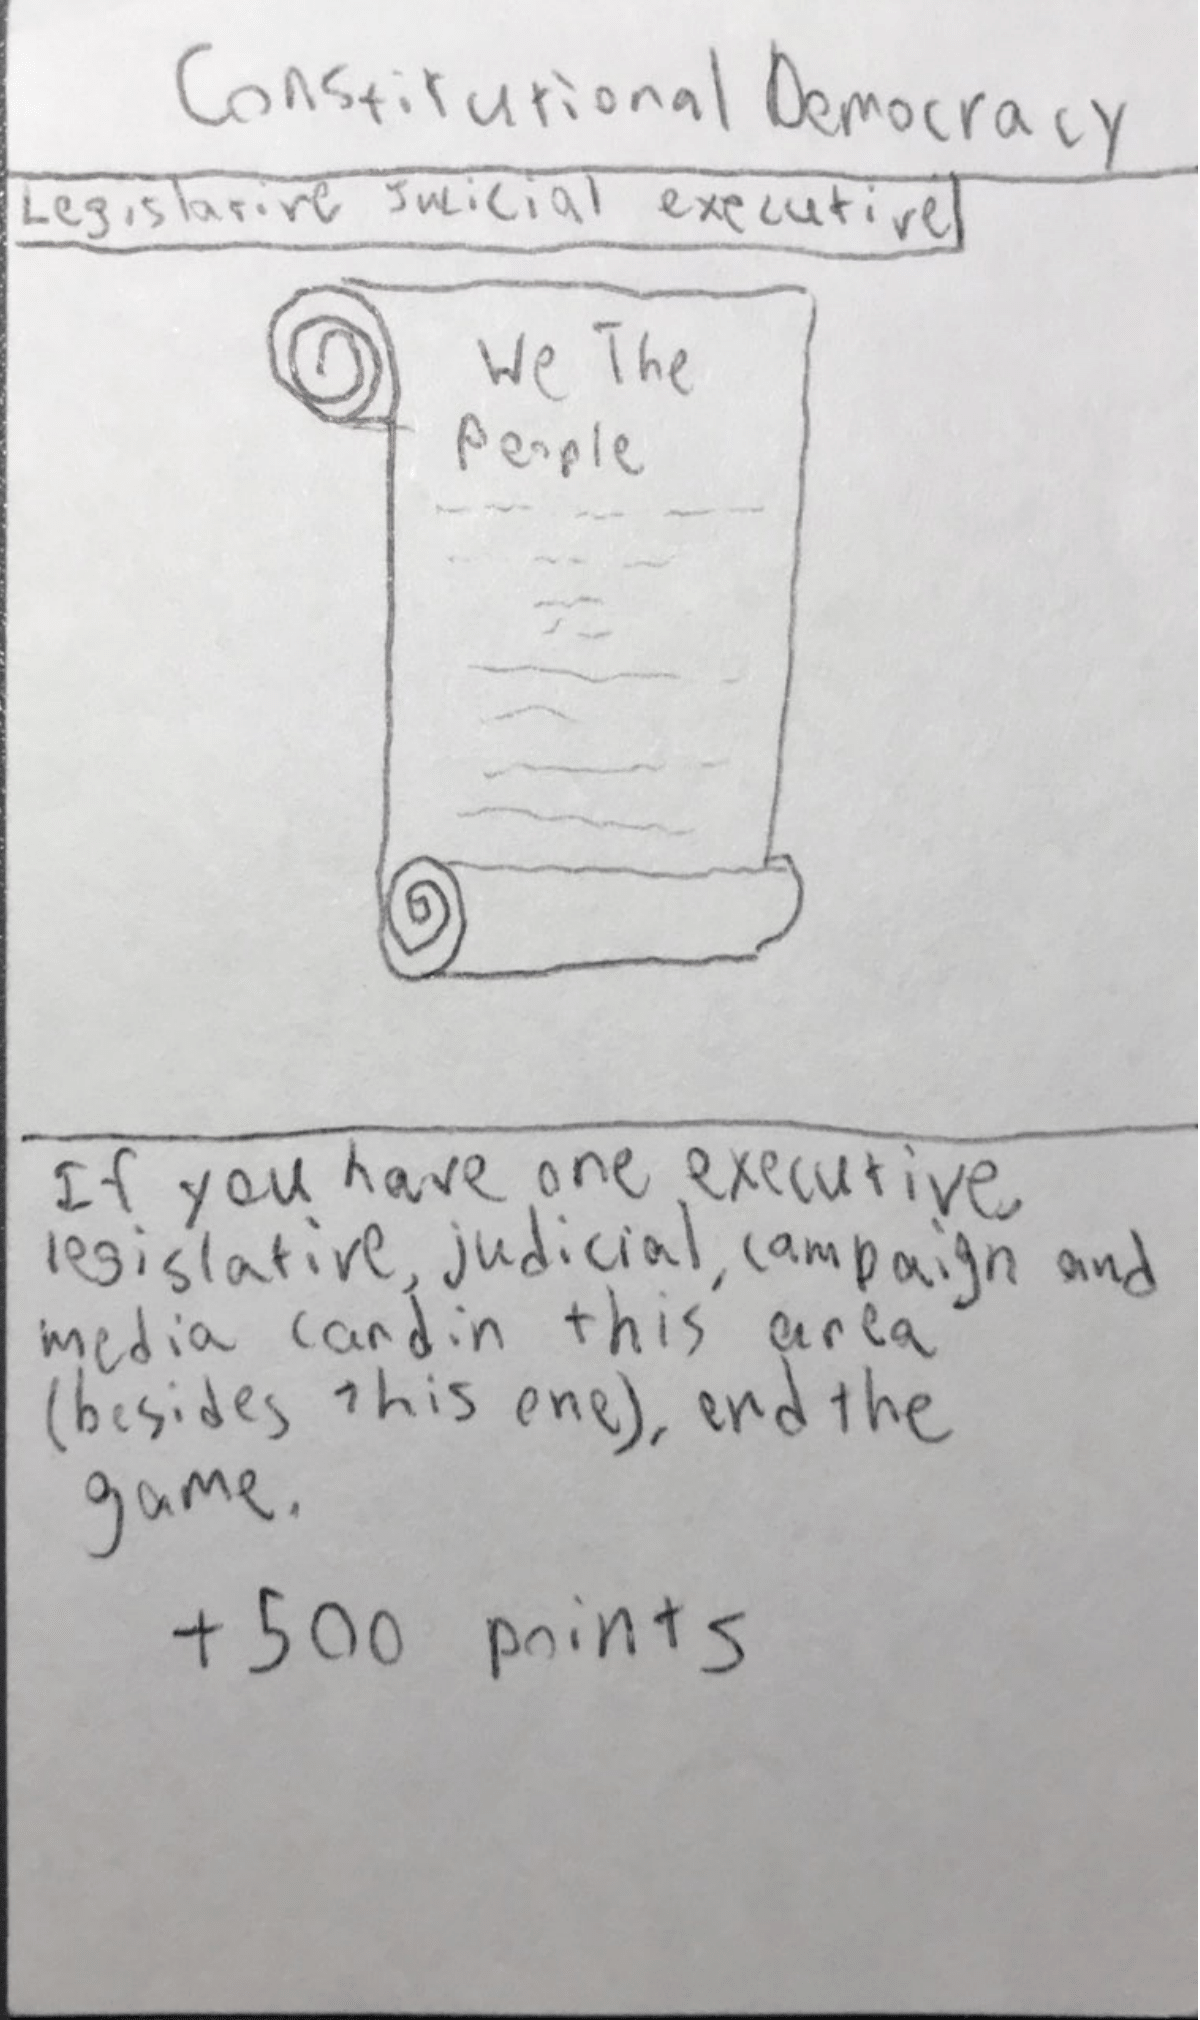 Constitutional Democracy
Legislative Judicial executive
We The
People
If you have one executive,
legislative, judicial, campaign and
media card in this area
(besides this one), end the
game.
+500 points